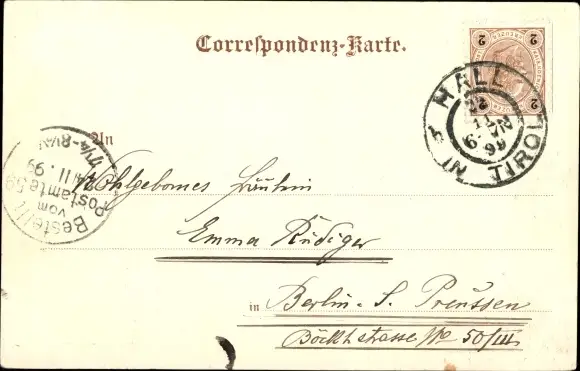 Correspondenz-Karte.
2 2
2 2
HALL
IN TIROL
22
11
6-VN
99
An
Bestellt
vom
Postamte 59
24/11.99
7¼-8½V.
Wohlgebornes Fräulein
Emma Rüdiger
in Berlin. S. Preussen
Böckhstrasse No 50/III